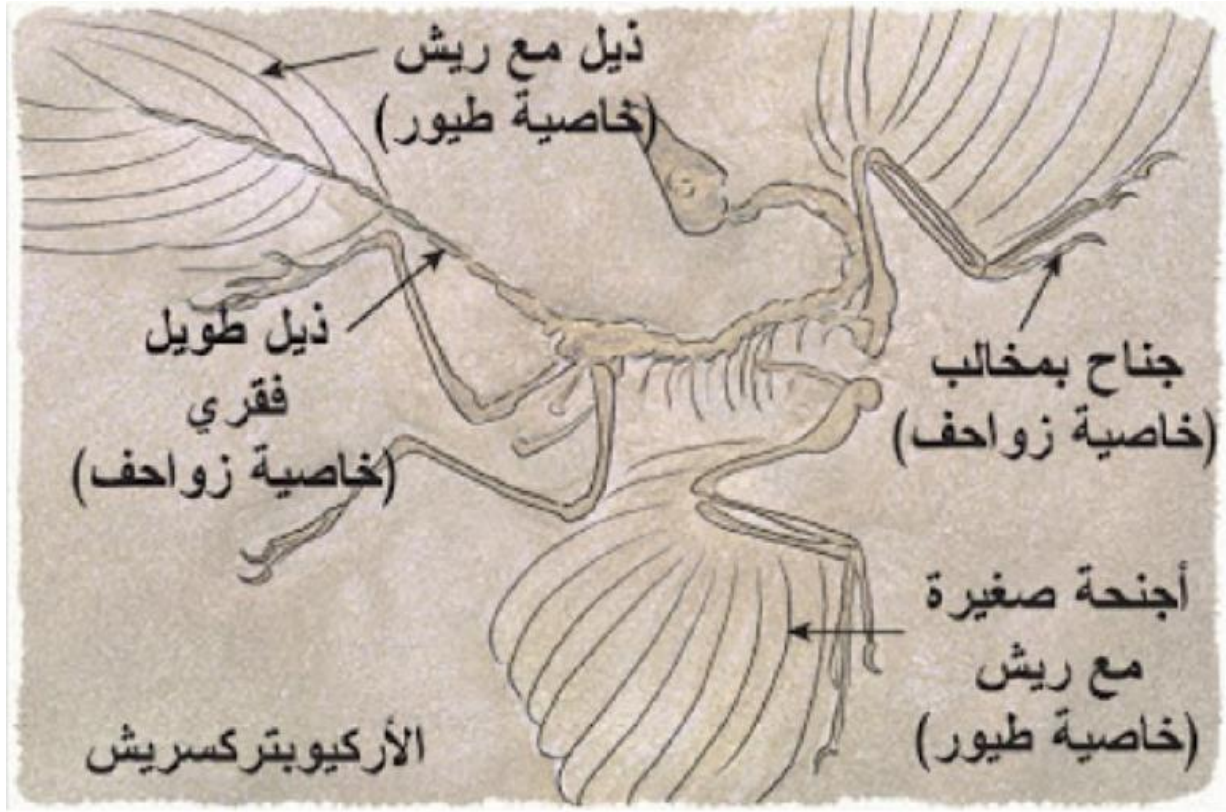 ذيل مع ريش
(خاصية طيور)
ذيل طويل
فقري
(خاصية زواحف)
جناح بمخالب
(خاصية زواحف)
أجنحة صغيرة
مع ريش
(خاصية طيور)
الأركيوبتركسريش